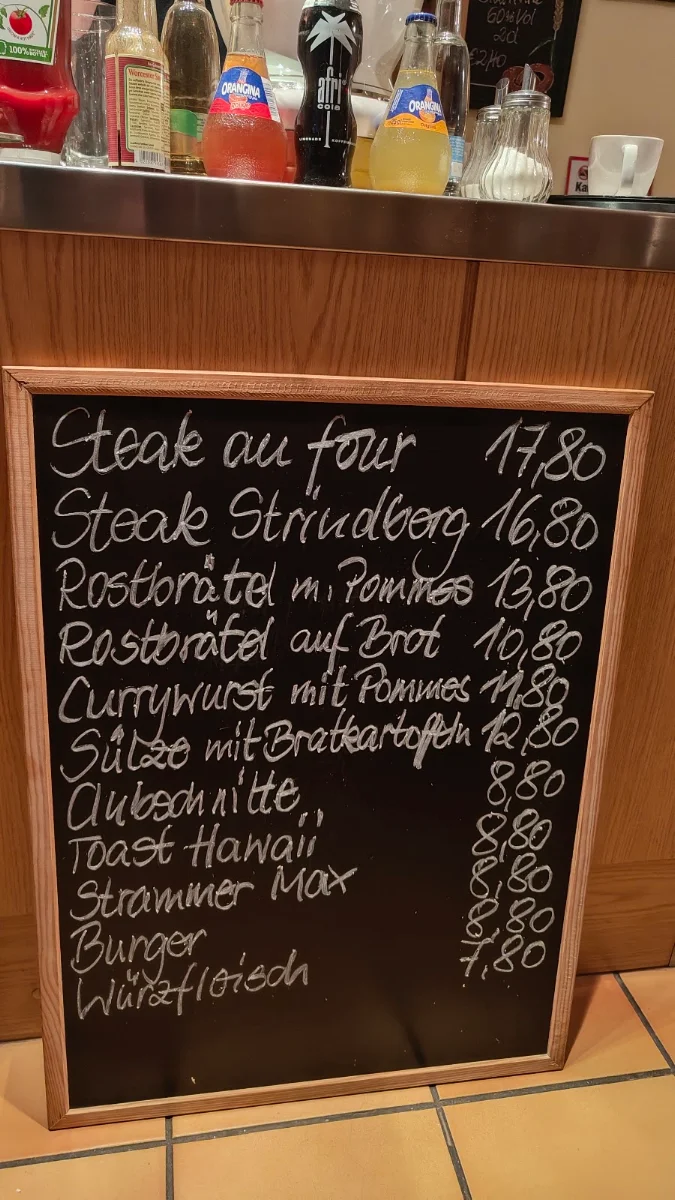 100%
Worcester
ORANGINA
afri
cola
ORANGINA
60%Vol
2cl
€2,40
Ka
Steak au four 17,80
Steak Strindberg 16,80
Rostbrätel m. Pommes 13,80
Rostbrätel auf Brot 10,80
Currywurst mit Pommes 11,80
Sülze mit Bratkartoffeln 12,80
Clubschnitte 8,80
Toast Hawaii 8,80
Strammer Max 8,80
Burger 8,80
Würzfleisch 7,80